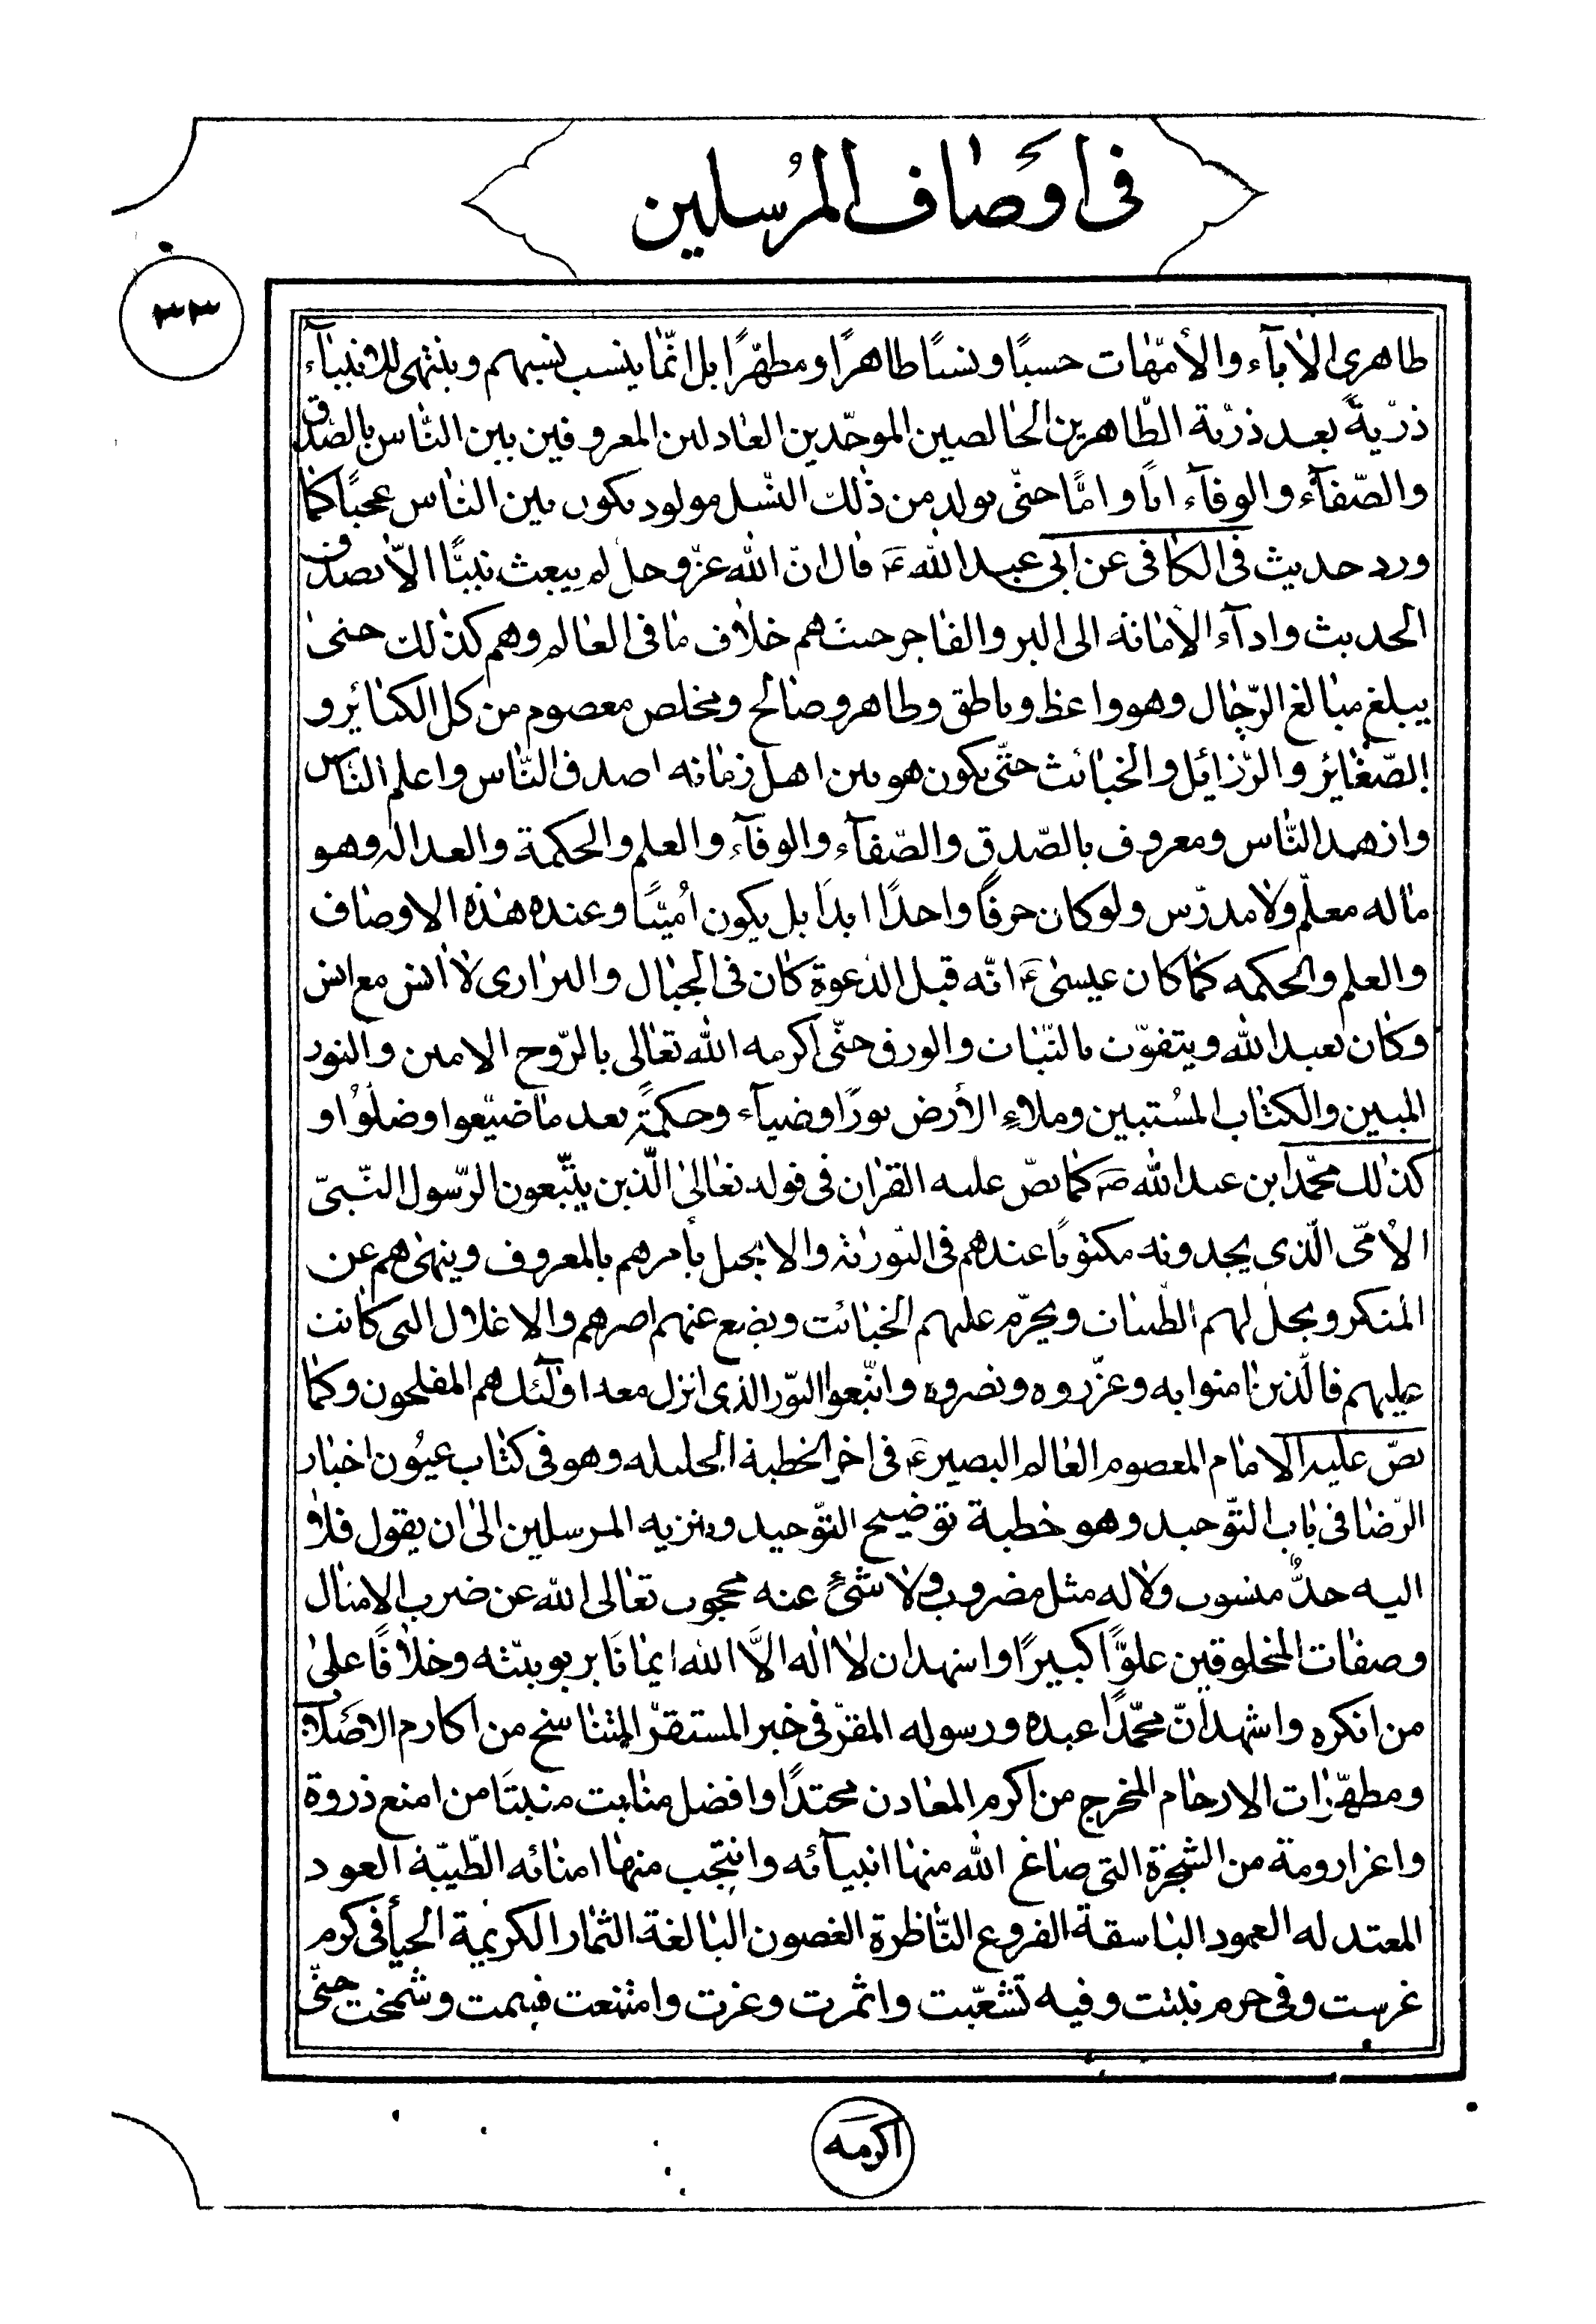 فى اوصاف المرسلين
٣٣
طاهرى الاباء والأمّهات حسبًا ونسبًا طاهرًا ومطهّرًا بل انّما ينسب نسبهم وينتهى للانبياء
ذرّيةً بعد ذرّية الطّاهرين الخالصين الموحّدين العادلين المعروفين بين النّاس بالصّدق
والصّفاء والوفاء ابًا وامًّا حتّى يولد من ذلك النّسل مولود يكون بين النّاس عجبًا كما
ورد حديث فى الكافى عن ابى عبد الله ع قال انّ الله عزّ وجل لم يبعث نبيًّا الاّ بصدق
الحديث واداء الأمانة الى البر والفاجر حيث هم خلاف ما فى العالم وهم كذلك حتى
يبلغ مبالغ الرّجال وهو واعظ وناطق وطاهر وصالح ومخلص معصوم من كل الكبائر و
الصّغاير والرّزائل والخبائث حتّى يكون هو بين اهل زمانه اصدق النّاس واعلم النّاس
وازهد النّاس ومعروف بالصّدق والصّفاء والوفاء والعلم والحكمة والعدالة وهو
ماله معلّم ولا مدرّس ولو كان حرفًا واحدًا ابدًا بل يكون اُميًّا وعنده هذه الاوصاف
والعلم والحكمه كما كان عيسى ع انّه قبل الدّعوة كان فى الجبال والبرارى لا انس مع انس
وكان يعبد الله ويتقوّت بالنّبات والورق حتّى اكرمه الله تعالى بالرّوح الامين والنور
المبين والكتاب المُستبين وملاءِ الأرض نورًا وضياء وحكمةً بعد ما ضيّعوا وضلّوُا و
كذلك محمّد ابن عبد الله ص كما نصّ عليه القران فى قوله تعالى الّذين يتّبعون الرّسول النّبىّ
الاُمّى الّذى يجدونه مكتوبًا عندهم فى التّورية والانجيل يأمرهم بالمعروف وينهىهم عن
المنكر ويحل لهم الطّيبات ويحرّم عليهم الخبائث ويضع عنهم اصرهم والاغلال التى كانت
عليهم فالّذين امنوا به وعزّروه ونصروه واتّبعوا النّور الذى انزل معه اولئك هم المفلحون وكما
نصّ عليه الامام المعصوم العالم البصير ع فى اخر الخطبة الجليله وهو فى كتاب عيُون اخبار
الرّضا فى باب التّوحيد وهو خطبة توضيح التّوحيد وتنزيه المرسلين الى ان يقول فلا
اليه حدٌّ منسوب ولا له مثل مضروب ولا شئ عنه محجوب تعالى الله عن ضرب الامثال
وصفات المخلوقين علوًّا كبيرًا واشهد ان لا اله الاَّ الله ايمانًا بربوبيّته وخلافًا على
من انكره واشهد انّ محمّدًا عبده ورسوله المقرّ فى خير المستقرّ المتناسخ من اكارم الاصَلاب
ومطهّرات الارحام المخرج من اكرم المعادن محتدًا وافضل منابت منبتًا من امنع ذروة
واعز ارومة من الشجرة التى صاغ الله منها انبيائه وانتجب منها امنائه الطّيّبة العود
المعتدله العمود الباسقة الفروع النّاظرة الغصون اليالغة الثمار الكريمة الحيأ فى كرم
غرست وفى حرم نبتت وفيه تشعّبت واثمرت وعزت وامتنعت فسمت وشمخت حتّى
اكرمه